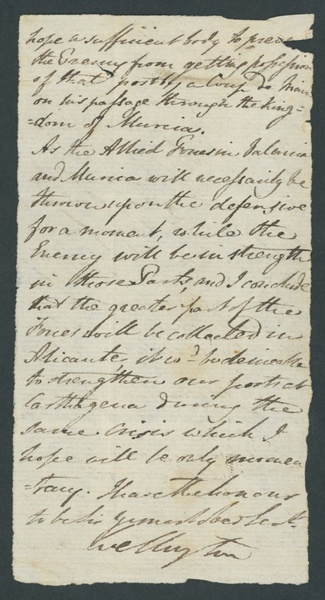 hope a sufficient body to preve
the Enemy from getting possession
of that post by a Coup de Main
on his passage through the King-
=dom of Murcia.
As the Allied Forces in Valencia
and Murcia will necessarily be
thrown upon the defensive
for a moment, while the
Enemy will be in strength
in those Parts, and I conclude
that the greater part of the
Forces will be collected in
Alicante, it wd. be desirable
to strengthen our posts at
Carthagena during the
same Crisis which I
hope will be only momen
=tary. I have the honour
to be Sir Yr most obed
Wellington